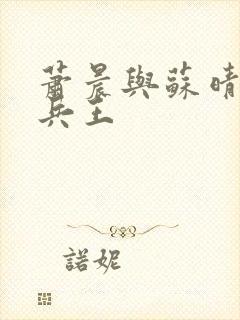 蕭晨與蘇晴
兵王
諾妮